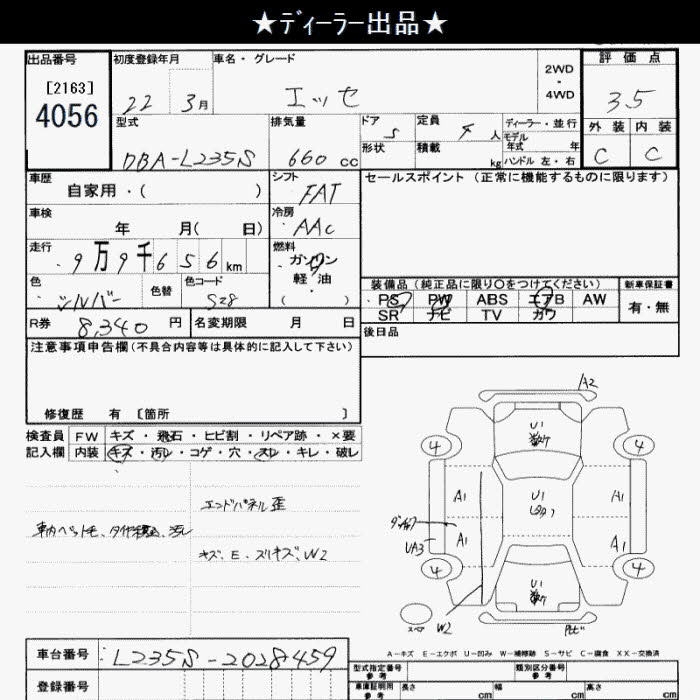 ★ディーラー出品★
出品番号 初度登録年月 車名・グレード 2WD・4WD 評価点
[2163]
4056 22 3月 エッセ 3.5
型式 排気量 ドア 5 定員 4人 ディーラー・並行 外装 内装
モデル年式 年
DBA-L235S 660cc 形状 積載 kg ハンドル 左・右 C C
車歴 シフト セールスポイント (正常に機能するものに限ります)
自家用・( ) FAT
車検 冷房
年 月( 日) AAC
走行 燃料
9万9千656km ガソリン
軽・油
( )
色 色替 色コード 装備品 (純正品に限り○をつけてください) 新車保証書
シルバー S28 PS PW ABS エアB AW 有・無
SR ナビ TV カワ
R券 8,340円 名変期限 月 日 後日品
注意事項申告欄(不具合内容等は具体的に記入して下さい)
修復歴 有 [箇所 ]
検査員 FW キズ・飛石・ヒビ割・リペア跡・×要
記入欄 内装 キズ・汚レ・コゲ・穴・スレ・キレ・破レ
エンドパネル歪
キズ、E、スリキズ、W2
A2
U1
4 4
A1 U1 A1
A1 A1
UA3
4 4
U1
スペア W2
A-キズ E-エクボ U-凹み W-補修跡 S-サビ C-腐食 XX-交換済
車台番号 L235S-2028459
登録番号
型式指定番号 参考 類別区分番号 参考
車庫証明用 参考 長さ cm 幅 cm 高さ cm